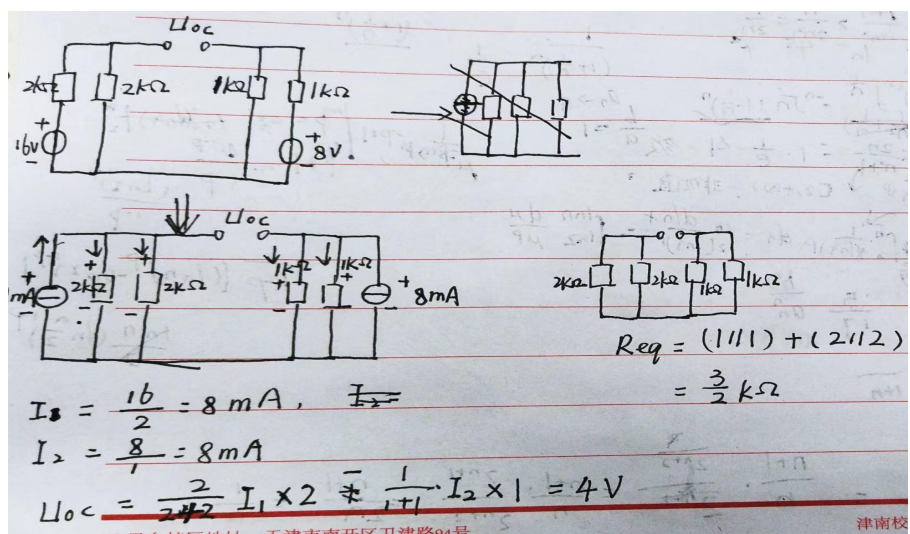 Uoc
2kΩ 2kΩ 1kΩ 1kΩ
+
16V
-
+
8V.
-
Uoc
+
mA
-
2kΩ 2kΩ 1kΩ 1kΩ
+
8mA
-
2kΩ 2kΩ 1kΩ 1kΩ
Req = (1//1) + (2//2)
= 3/2 kΩ
I₁ = 16/2 = 8mA,
I₂ = 8/1 = 8mA
Uoc = 2/(2+2) I₁ × 2 - 1/(1+1) · I₂ × 1 = 4V
津南校